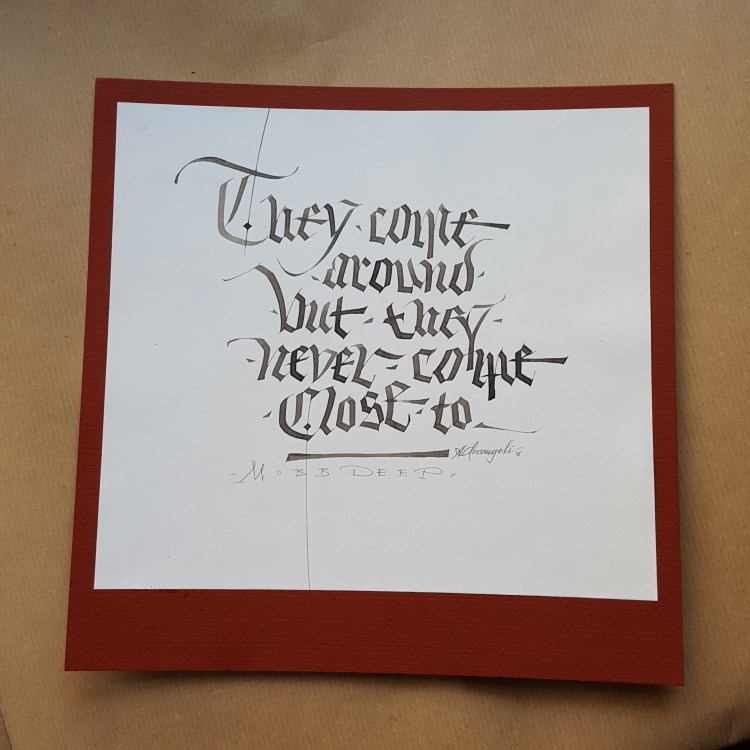 They come
around
but they
never come
Close to_
A Arcangeli
MOBB DEEP.